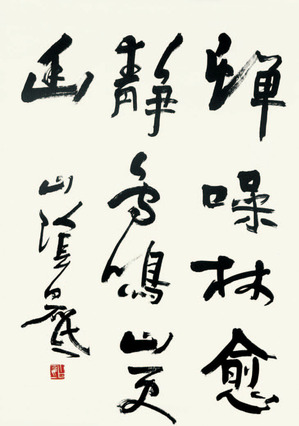 蝉噪林愈
静鸟鸣山更
幽
山陰